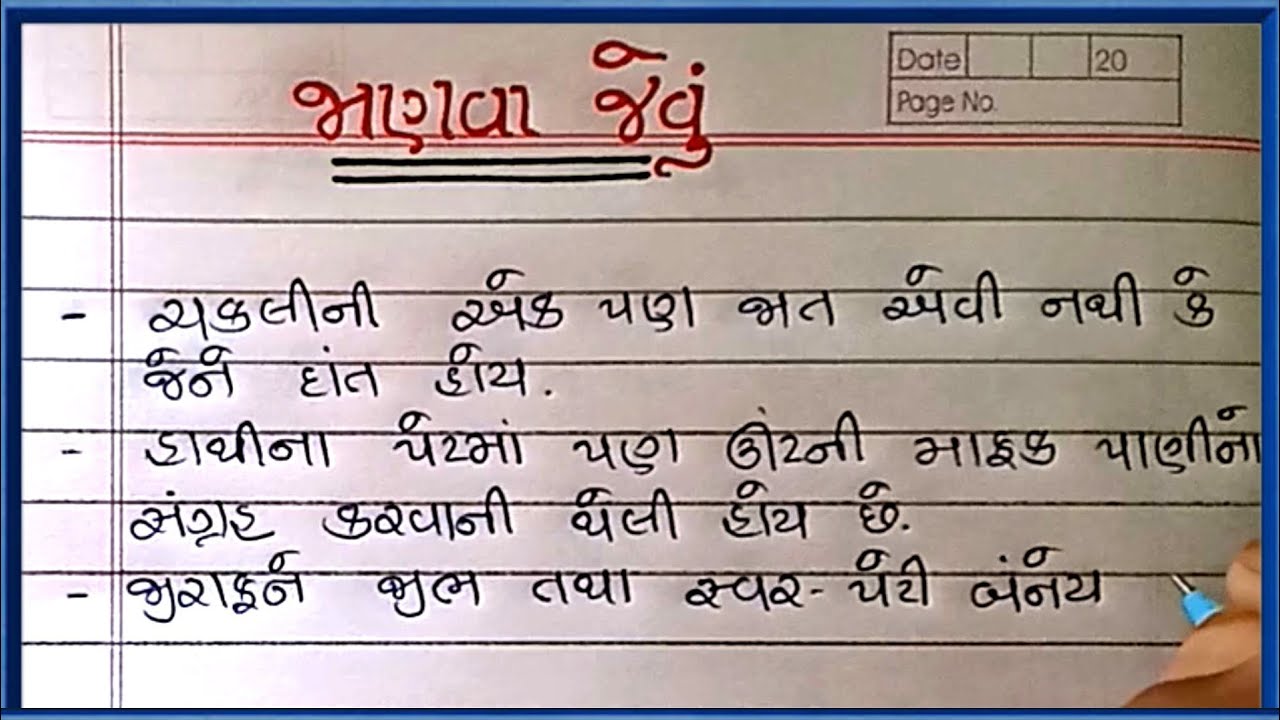 જાણવા જેવું
Date 20
Page No.
- ચકલીની એક પણ જાત એવી નથી કે
જેને દાંત હોય.
- હાથીના પેટમાં પણ ઊંટની માફક પાણીનો
સંગ્રહ કરવાની થેલી હોય છે.
- જીરાફને જીભ તથા સ્વર-પેટી બંનેય